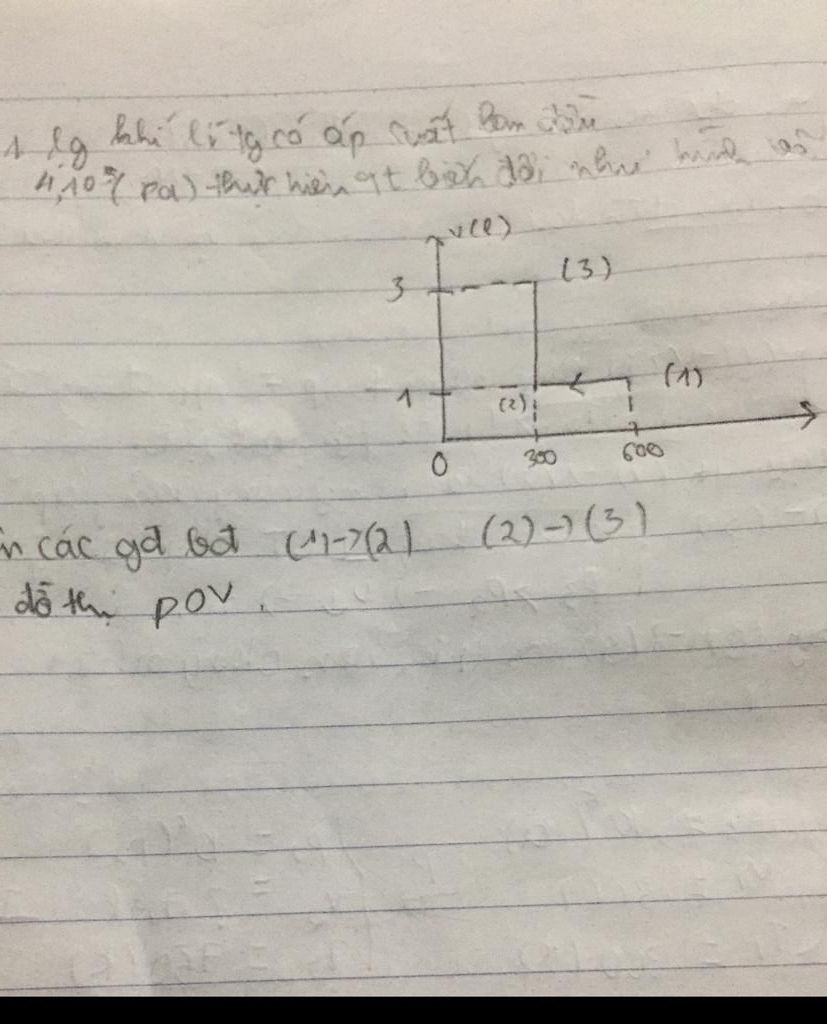 1 lg khí lí tg có áp suất ban đầu
4,10⁵ (pa) thực hiện qt biến đổi như hình
v(l)
3 (3)
1 (2) (1)
0 300 600
n các gđ bđ (1)->(2) (2)->(3)
đồ thị pOV.